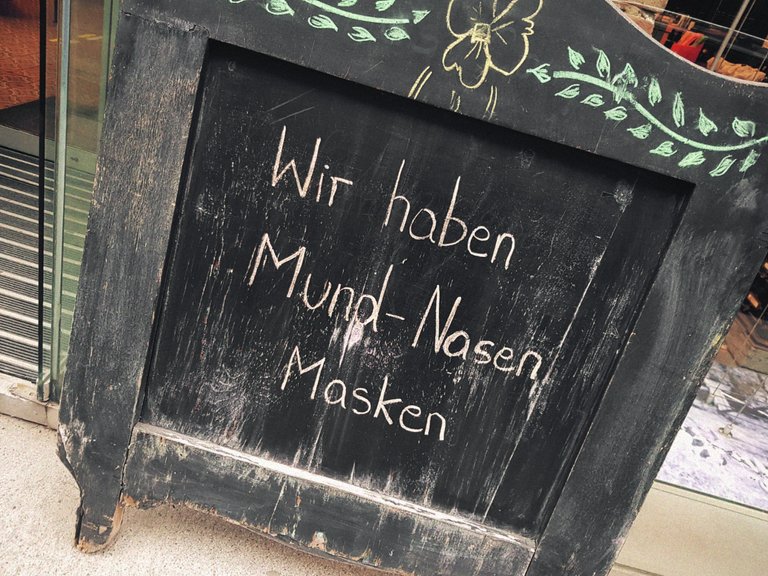 Wir haben
Mund-Nasen
Masken